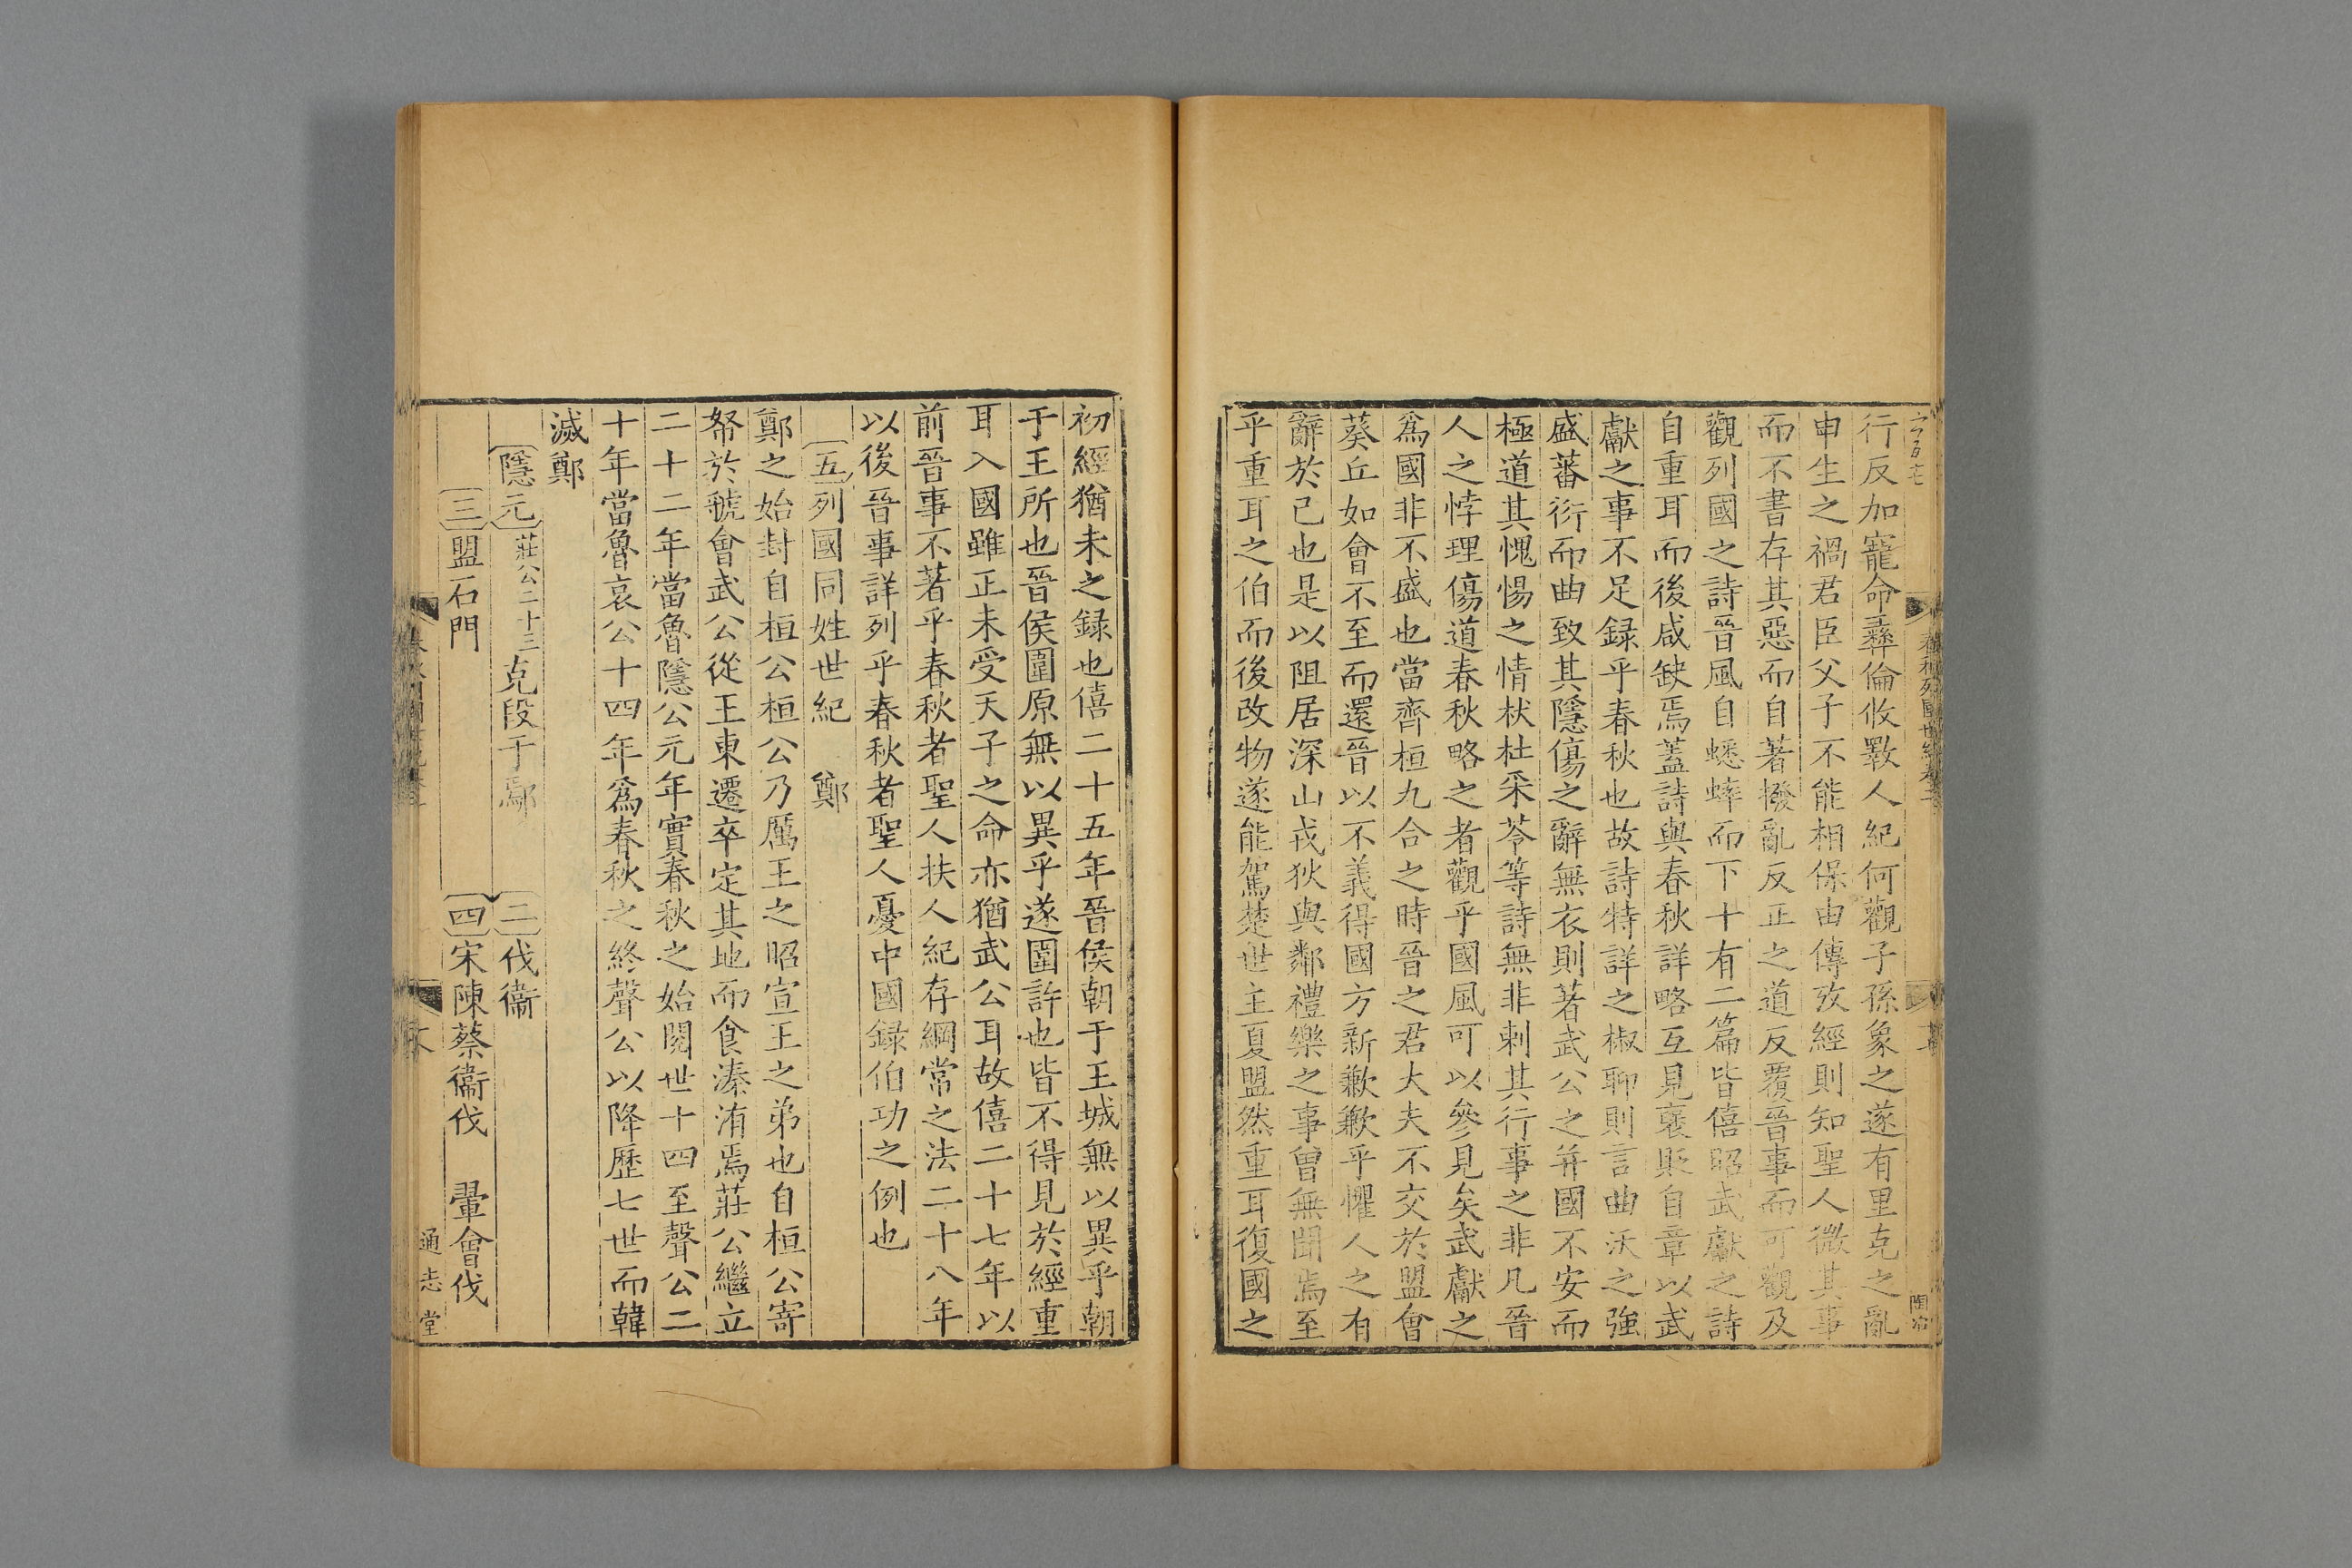 行反加寵命彝倫攸斁人紀何觀子孫象之遂有里克之亂
申生之禍君臣父子不能相保由傳攷經則知聖人微其事
而不書存其惡而自著撥亂反正之道反覆晉事而可觀及
觀列國之詩晉風自蟋蟀而下十有二篇皆僖昭武獻之詩
自重耳而後咸缺焉蓋詩與春秋詳略互見褒貶自章以武
獻之事不足録乎春秋也故詩特詳之椒聊則言曲沃之強
盛蕃衍而曲致其隱傷之辭無衣則著武公之并國不安而
極道其愧惕之情杕杜采苓等詩無非刺其行事之非凡晉
人之悖理傷道春秋略之者觀乎國風可以參見矣武獻之
爲國非不盛也當齊桓九合之時晉之君大夫不交於盟會
葵丘如會不至而還晉以不義得國方新歉歉乎懼人之有
辭於己也是以阻居深山戎狄與鄰禮樂之事曾無聞焉至
乎重耳之伯而後改物遂能駕楚世主夏盟然重耳復國之
初經猶未之録也僖二十五年晉侯朝于王城無以異乎朝
于王所也晉侯圍原無以異乎遂圍許也皆不得見於經重
耳入國雖正未受天子之命亦猶武公耳故僖二十七年以
前晉事不著乎春秋者聖人扶人紀存綱常之法二十八年
以後晉事詳列乎春秋者聖人憂中國録伯功之例也
五列國同姓世紀 鄭
鄭之始封自桓公桓公乃厲王之昭宣王之弟也自桓公寄
帑於虢會武公從王東遷卒定其地而食溱洧焉莊公繼立
二十二年當魯隱公元年實春秋之始閱世十四至聲公二
十年當魯哀公十四年爲春秋之終聲公以降歷七世而韓
滅鄭
隱元莊公二十三克段于鄢 二伐衞
三盟石門 四宋陳蔡衞伐 翬會伐
通志堂